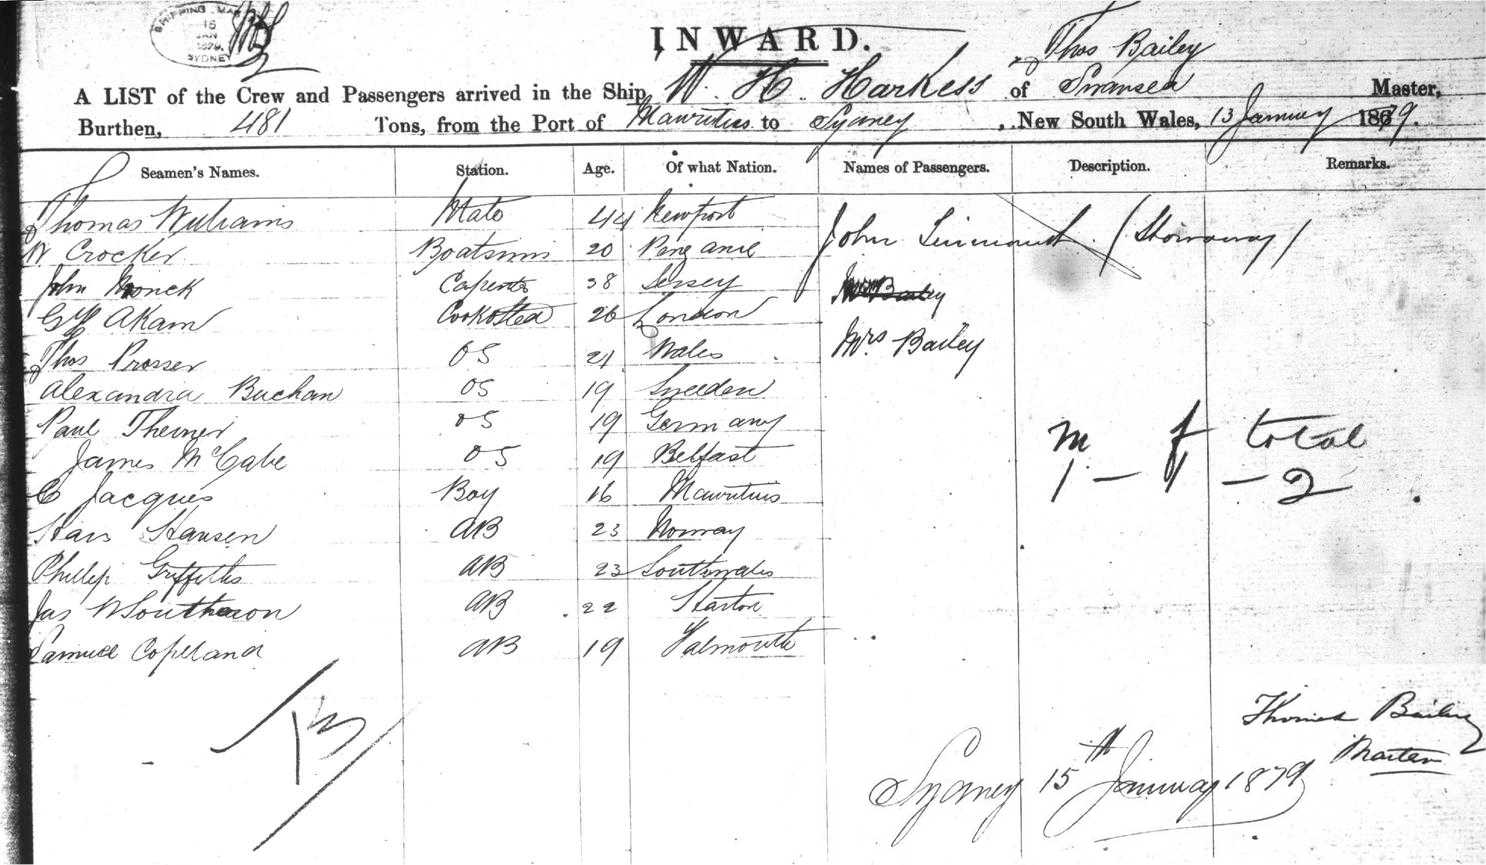 SHIPPING MAS
15
JAN
1879
SYDNEY
INWARD.
Thos Bailey
A LIST of the Crew and Passengers arrived in the Ship W. H. Harkess of Swansea Master,
Burthen, 481 Tons, from the Port of Mauritius to Sydney, New South Wales, 13 January 1879.
Seamen's Names. Station. Age. Of what Nation. Names of Passengers. Description. Remarks.
Thomas Williams Mate 44 Newport
W Crocker Boatswin 20 Penzanie John (Stowaway)
John Monck Carpenter 38 Jersey Mrs Bailey
Akam Cook & Stead 26 London
Thos Prosser OS 21 Wales Mrs Bailey
Alexandra Buchan OS 19 Sweeden
Paul Theiner OS 19 Germany m f total
James McCabe OS 19 Belfast 1 - 1 - 2
C Jacques Boy 16 Mauritius
Hans Hansen AB 23 Norway
Phillip Griffiths AB 23 Southwales
Jas W Southeron AB 22
Samuel Copeland AB 19 Falmouth
13
Thomas Bailey
Master
Sydney 15th January 1879